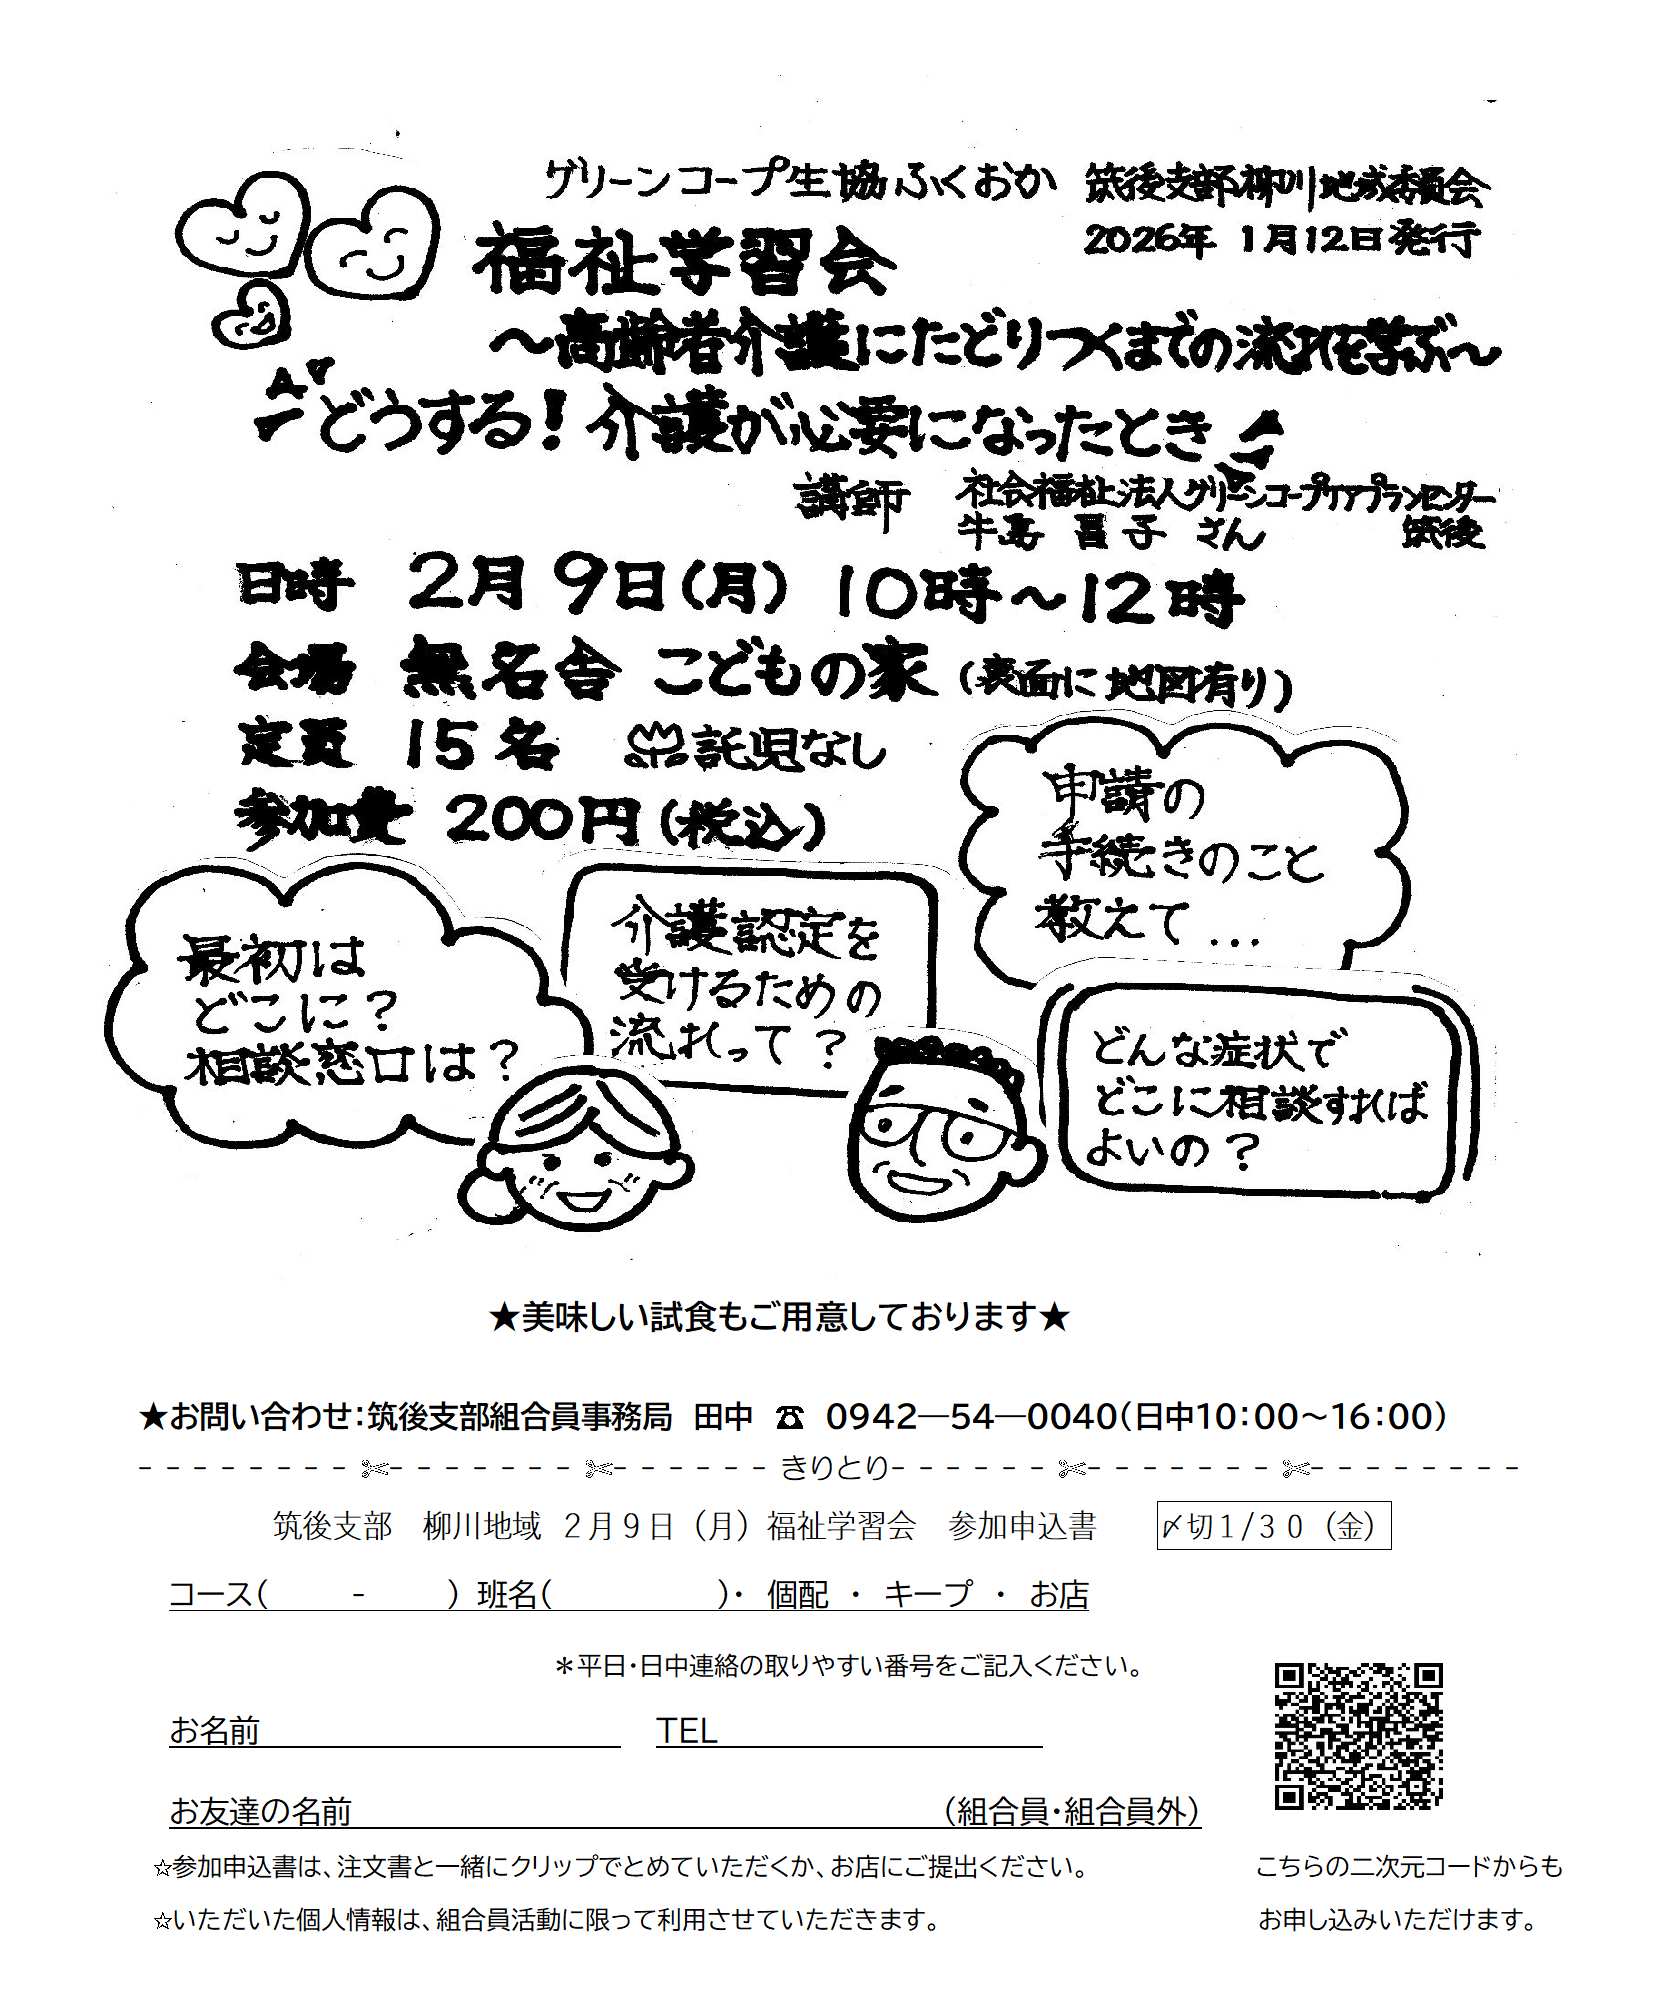 グリーンコープ生協ふくおか 筑後支部柳川地域委員会
2026年 1月12日発行
福祉学習会
～高齢者介護にたどりつくまでの流れを学ぶ～
どうする!介護が必要になったとき
講師 社会福祉法人グリーンコープケアプランセンター
牛島 昌子 さん 筑後
日時 2月9日(月) 10時～12時
会場 無名舎 こどもの家 (裏面に地図有り)
定員 15名 託児なし
参加費 200円(税込)
申請の
手続きのこと
教えて...
最初は
どこに?
相談窓口は?
介護認定を
受けるための
流れって?
どんな症状で
どこに相談すれば
よいの?
★美味しい試食もご用意しております★
★お問い合わせ：筑後支部組合員事務局 田中 ☎ 0942―54―0040（日中10：00～16：00）
- - - - - - - - ✄- - - - - - - ✄- - - - - - きりとり- - - - - - ✄- - - - - - - ✄- - - - - - - -
筑後支部 柳川地域 2月9日（月）福祉学習会 参加申込書 〆切1/30（金）
コース（ - ） 班名（ ）・ 個配 ・ キープ ・ お店
＊平日・日中連絡の取りやすい番号をご記入ください。
お名前 TEL
お友達の名前 （組合員・組合員外）
☆参加申込書は、注文書と一緒にクリップでとめていただくか、お店にご提出ください。
☆いただいた個人情報は、組合員活動に限って利用させていただきます。
こちらの二次元コードからも
お申し込みいただけます。